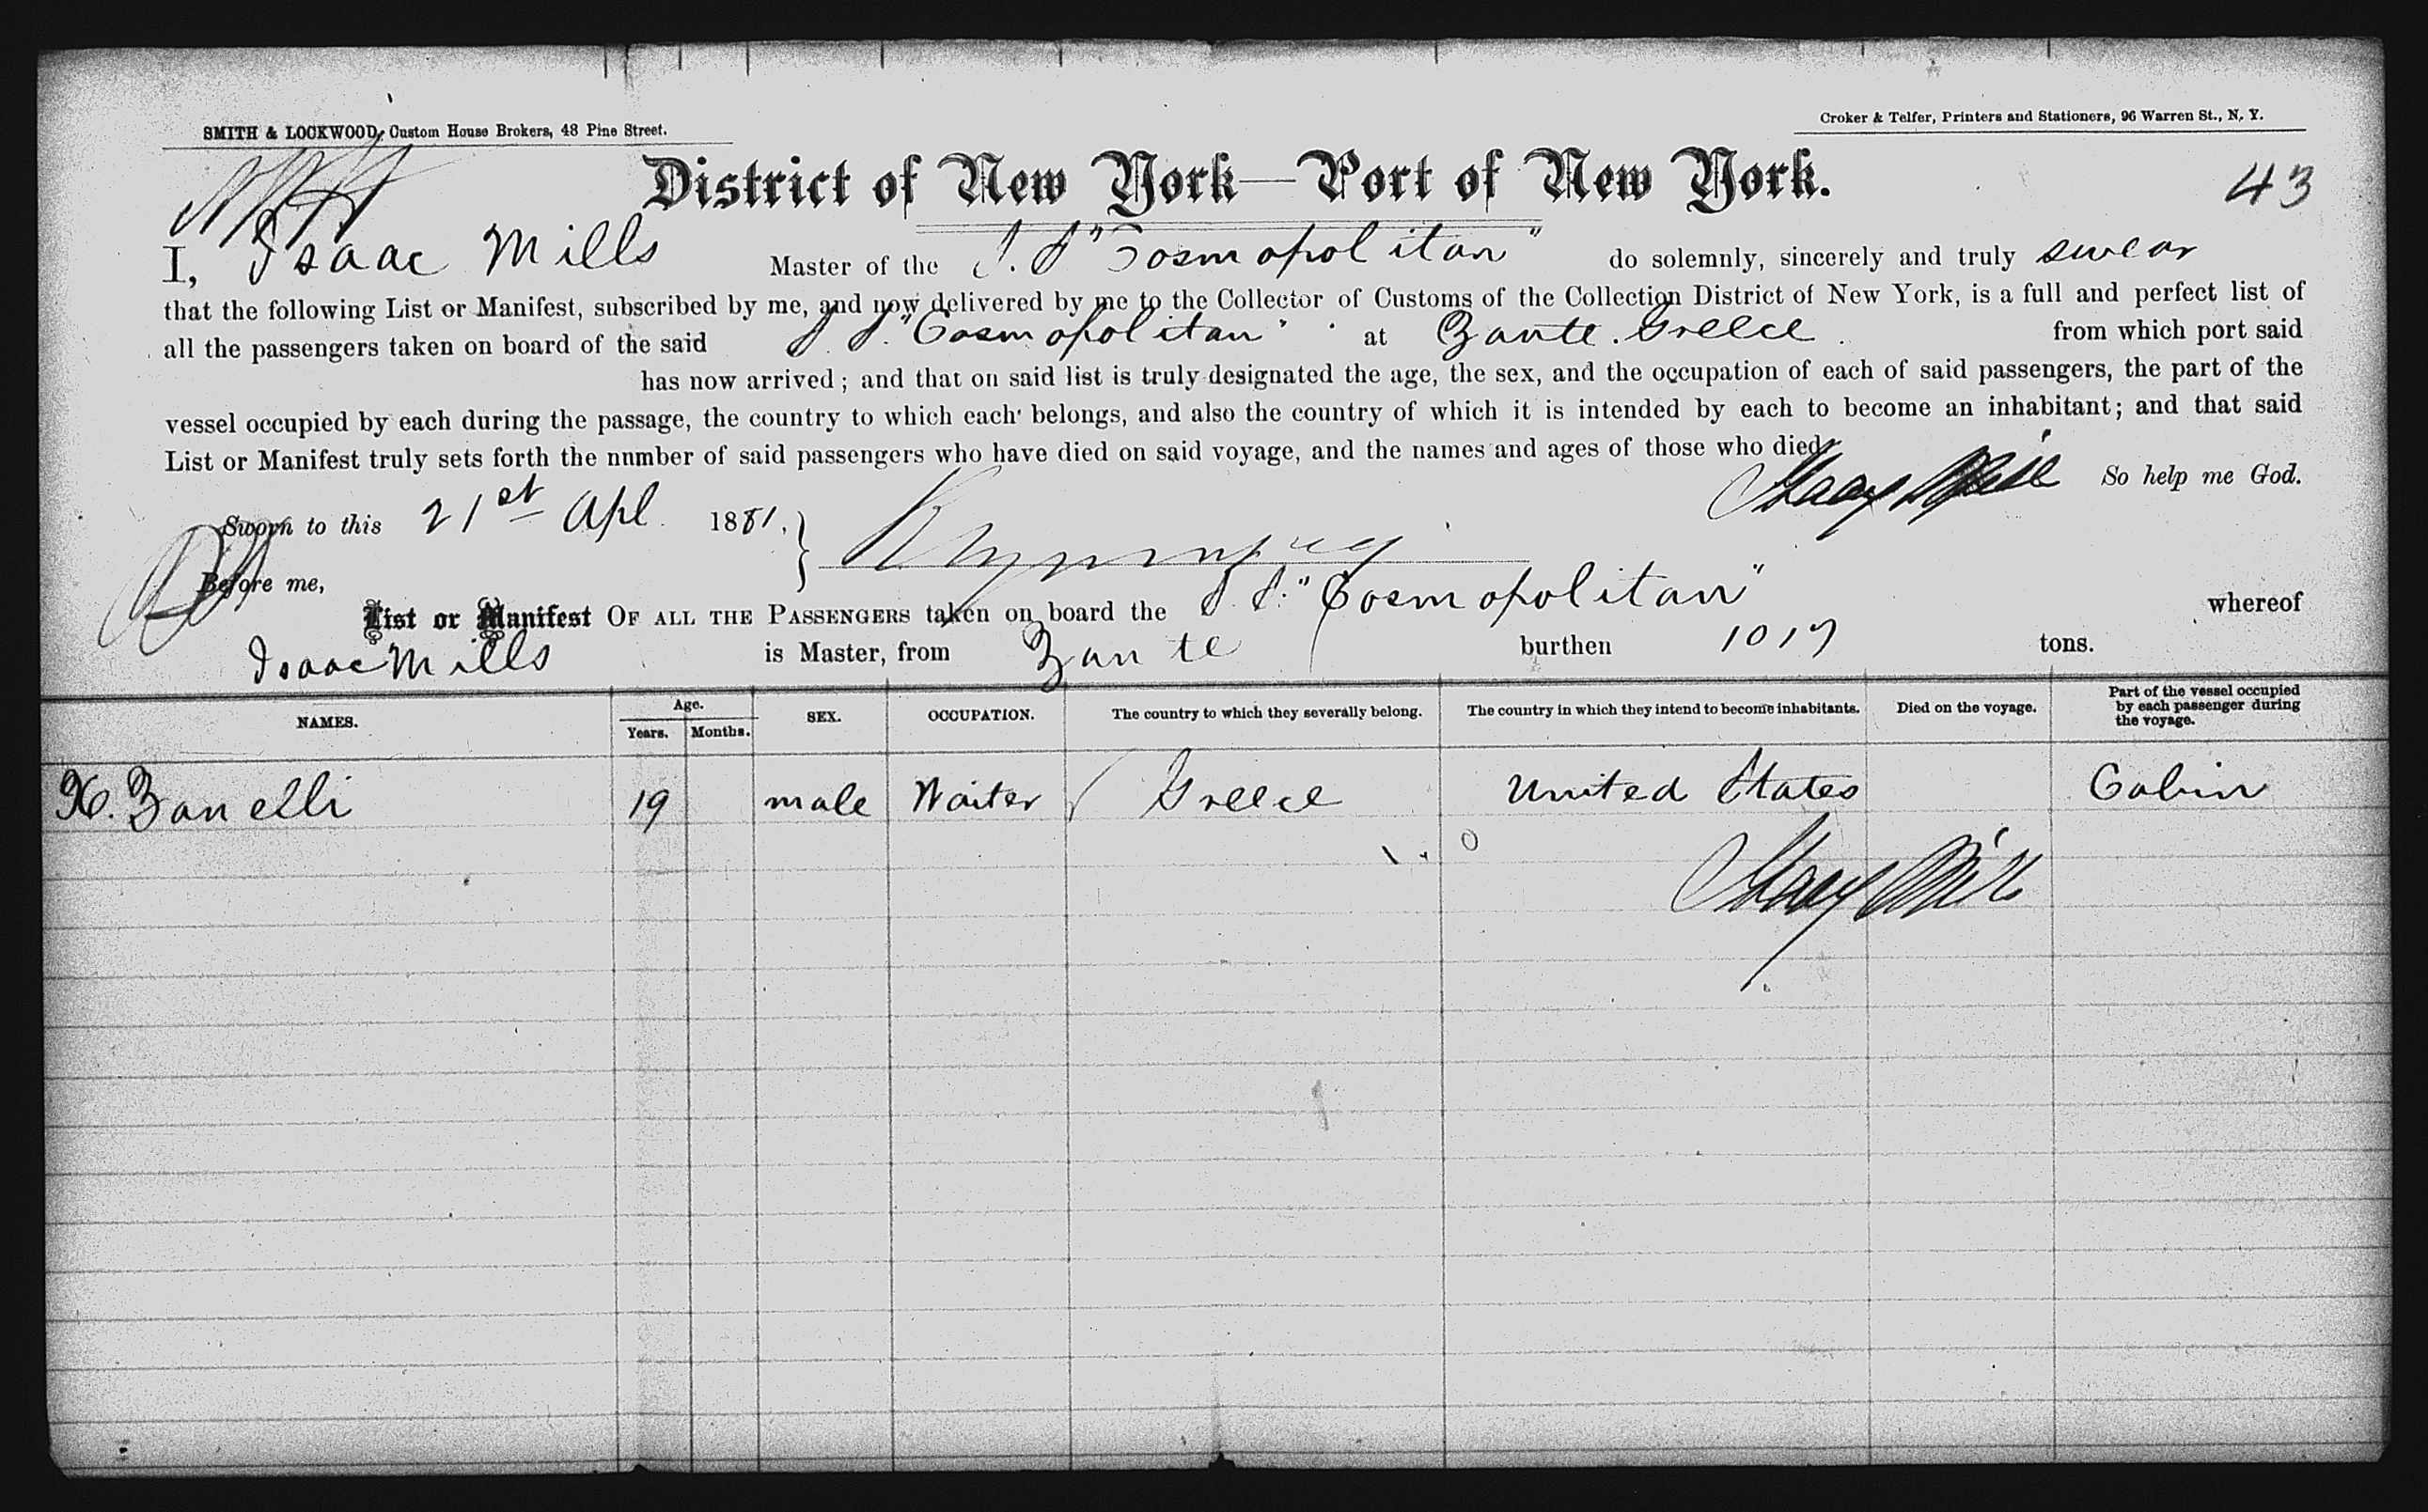 SMITH & LOCKWOOD, Custom House Brokers, 48 Pine Street.
Croker & Telfer, Printers and Stationers, 96 Warren St., N. Y.
District of New York—Port of New York.
43
I, Isaac Mills Master of the S. S "Cosmopolitan" do solemnly, sincerely and truly swear
that the following List or Manifest, subscribed by me, and now delivered by me to the Collector of Customs of the Collection District of New York, is a full and perfect list of
all the passengers taken on board of the said S. S. "Cosmopolitan" at Zante. Greece from which port said
has now arrived; and that on said list is truly designated the age, the sex, and the occupation of each of said passengers, the part of the
vessel occupied by each during the passage, the country to which each belongs, and also the country of which it is intended by each to become an inhabitant; and that said
List or Manifest truly sets forth the nnmber of said passengers who have died on said voyage, and the names and ages of those who died.
So help me God.
Sworn to this 21st Apl. 1881.
Before me,
List or Manifest OF ALL THE PASSENGERS taken on board the S. S. "Cosmopolitan" whereof
Isaac Mills is Master, from Zante burthen 1017 tons.
NAMES. Age. Years. Months. SEX. OCCUPATION. The country to which they severally belong. The country in which they intend to become inhabitants. Died on the voyage. Part of the vessel occupied by each passenger during the voyage.
Zanelli 19 male Waiter Greece United States Cabin